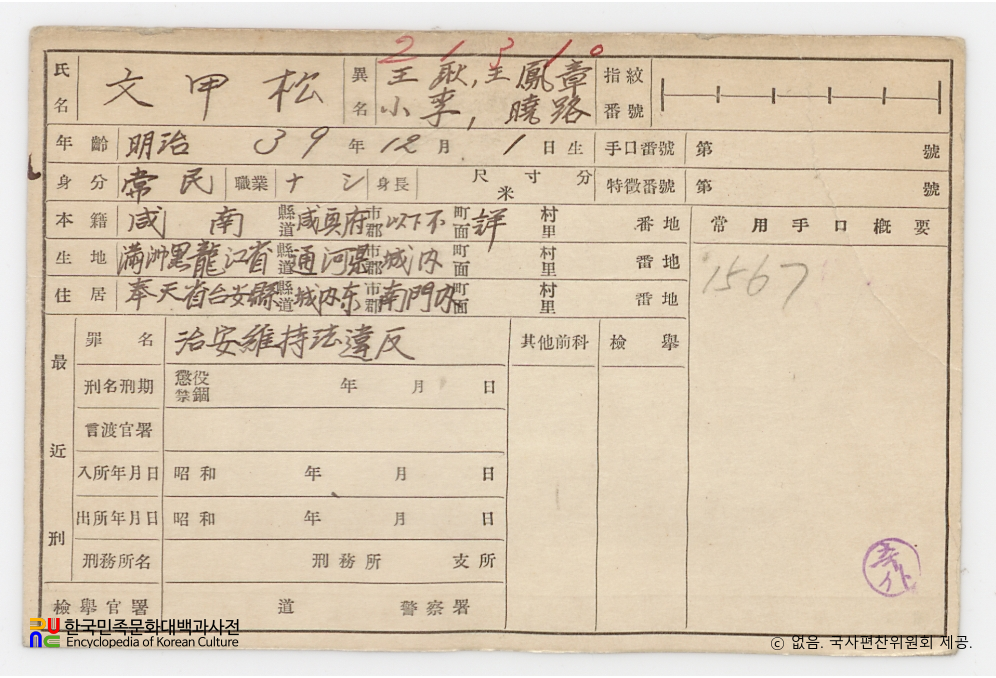 2 1 3 1 0
氏名 文甲松 異名 王耿,王鳳章 指紋番號
小李,曉路
年齡 明治39年12月1日生 手口番號 第 號
身分 常民 職業 ナシ 身長 尺寸分 米 特徵番號 第 號
本籍 咸南 縣道 咸興府 市郡 以下不 町面 詳 村里 番地 常用手口概要
生地 滿洲黑龍江省 縣道 通河県 市郡 城內 町面 村里 番地 1567
住居 奉天省台安縣 縣道 城內东 市郡 南門內 町面 村里 番地
最近刑 罪名 治安維持法違反 其他前科 檢擧
刑名刑期 懲役 禁錮 年 月 日
言渡官署
入所年月日 昭和 年 月 日
出所年月日 昭和 年 月 日
刑務所名 刑務所 支所
檢擧官署 道 警察署
한국민족문화대백과사전
Encyclopedia of Korean Culture
ⓒ 없음. 국사편찬위원회 제공.